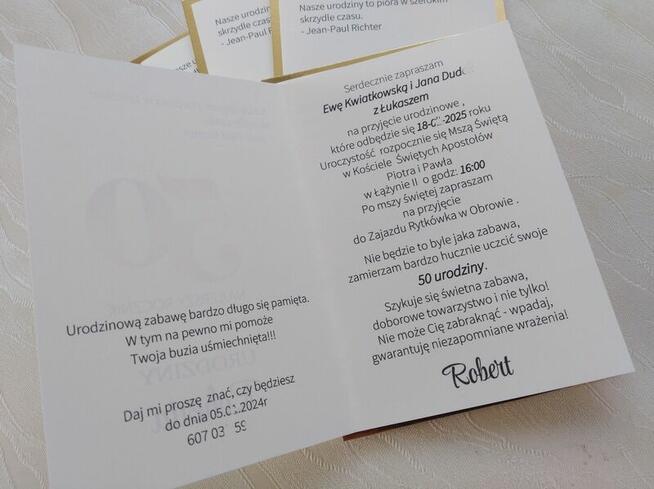 Nasze urodziny
skrzydle czasu.
- Jean-Paul R
Nasze urodziny to pióra w szerokim
skrzydle czasu.
- Jean-Paul Richter
Urodzinową zabawę bardzo długo się pamięta.
W tym na pewno mi pomoże
Twoja buzia uśmiechnięta!!!
Daj mi proszę znać, czy będziesz
do dnia 05.0 .2024r
607 03 59
Serdecznie zapraszam
Ewę Kwiatkowską i Jana Dud
z Łukaszem
na przyjęcie urodzinowe ,
które odbędzie się 18-0 -2025 roku
Uroczystość rozpocznie się Mszą Świętą
w Kościele Świętych Apostołów
Piotra i Pawła
w Łążynie II o godz: 16:00
Po mszy świętej zapraszam
na przyjęcie
do Zajazdu Rytkówka w Obrowie .
Nie będzie to byle jaka zabawa,
zamierzam bardzo hucznie uczcić swoje
50 urodziny.
Szykuje się świetna zabawa,
doborowe towarzystwo i nie tylko!
Nie może Cię zabraknąć - wpadaj,
gwarantuję niezapomniane wrażenia!
Robert